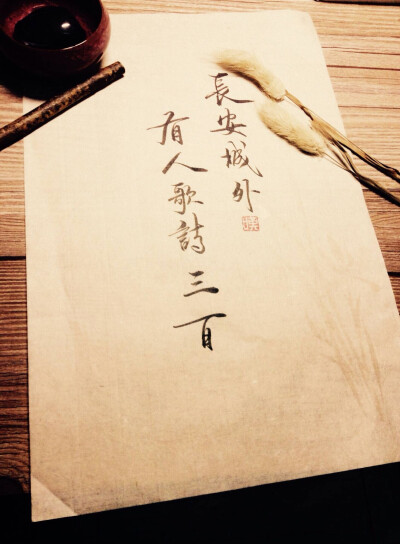 長安城外
有人歌詩三百